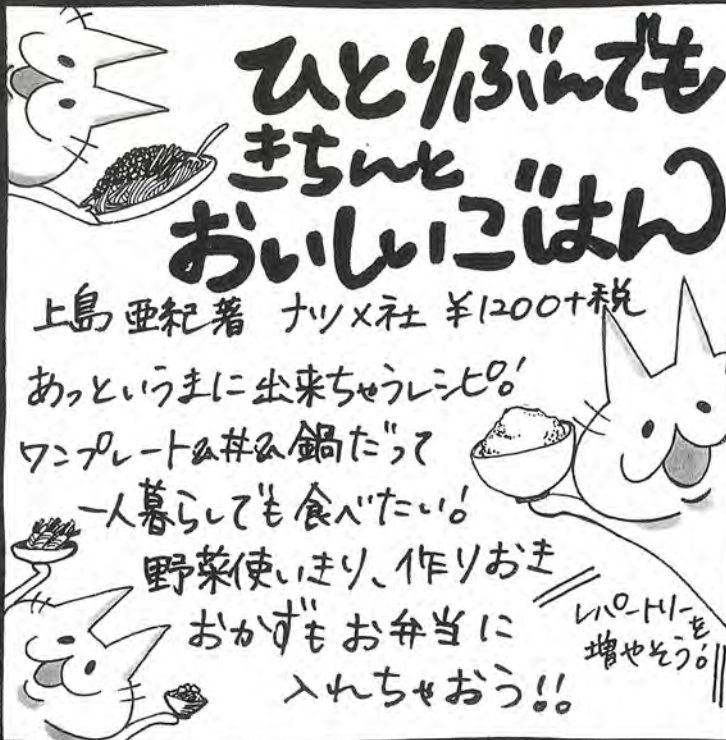 ひとりぶんでも
きちんと
おいしいごはん
上島 亜紀 著 ナツメ社 ¥1200+税
あっというまに出来ちゃうレシピ!
ワンプレート&丼&鍋だって
一人暮らしでも食べたい!
野菜使いきり、作りおき
おかずもお弁当に
入れちゃおう!!
レパートリーを
増やそう!